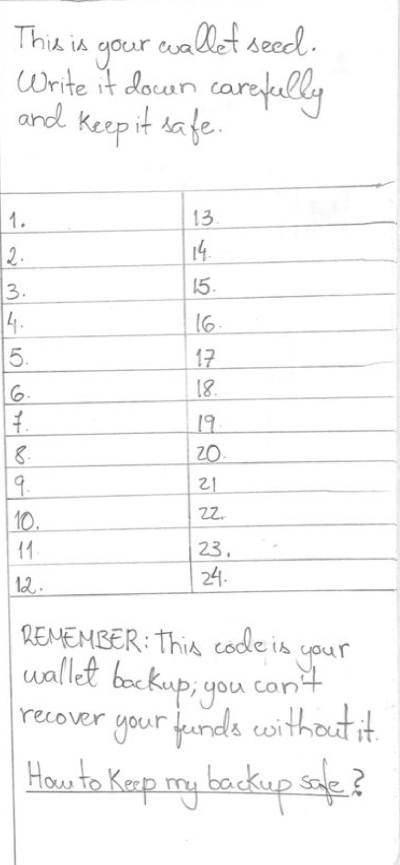 This is your wallet seed.
Write it down carefully
and keep it safe.
1.
13.
2.
14.
3.
15.
4.
16.
5.
17
6.
18.
7.
19.
8.
20.
9.
21
10.
22.
11.
23.
12.
24.
REMEMBER: This code is your
wallet backup; you can't
recover your funds without it.
How to Keep my backup safe?